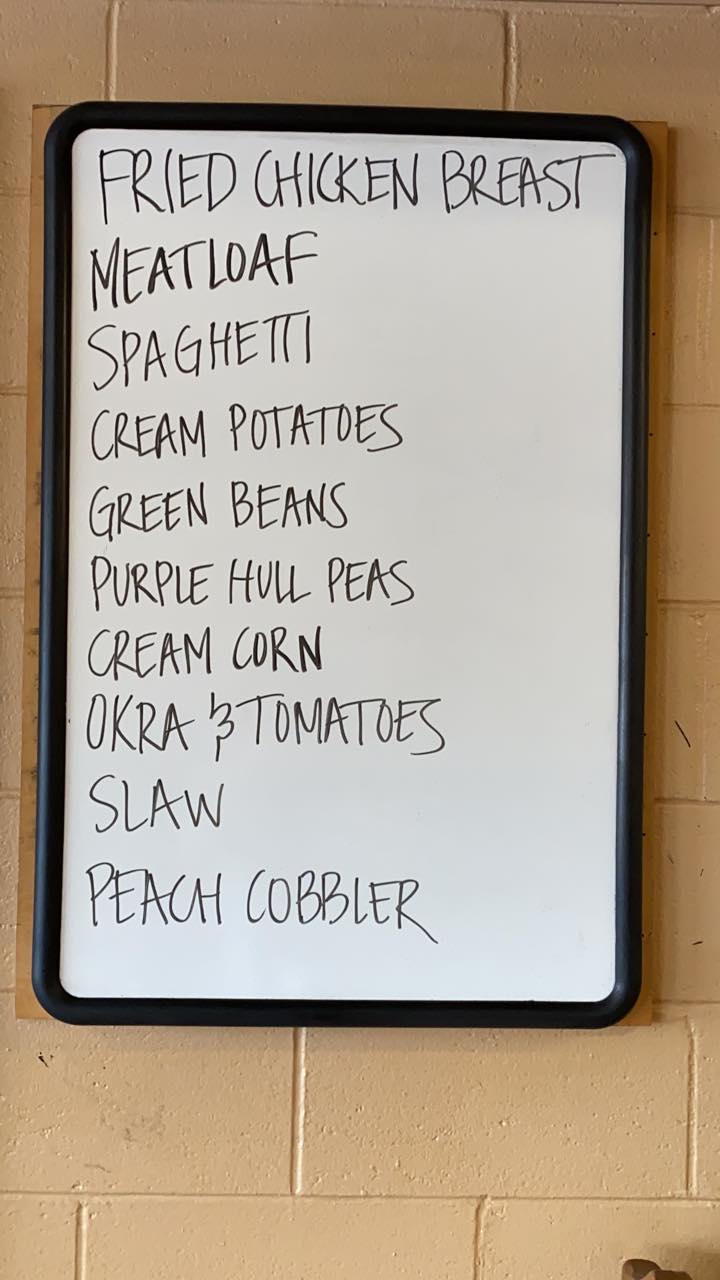 FRIED CHICKEN BREAST
MEATLOAF
SPAGHETTI
CREAM POTATOES
GREEN BEANS
PURPLE HULL PEAS
CREAM CORN
OKRA & TOMATOES
SLAW
PEACH COBBLER